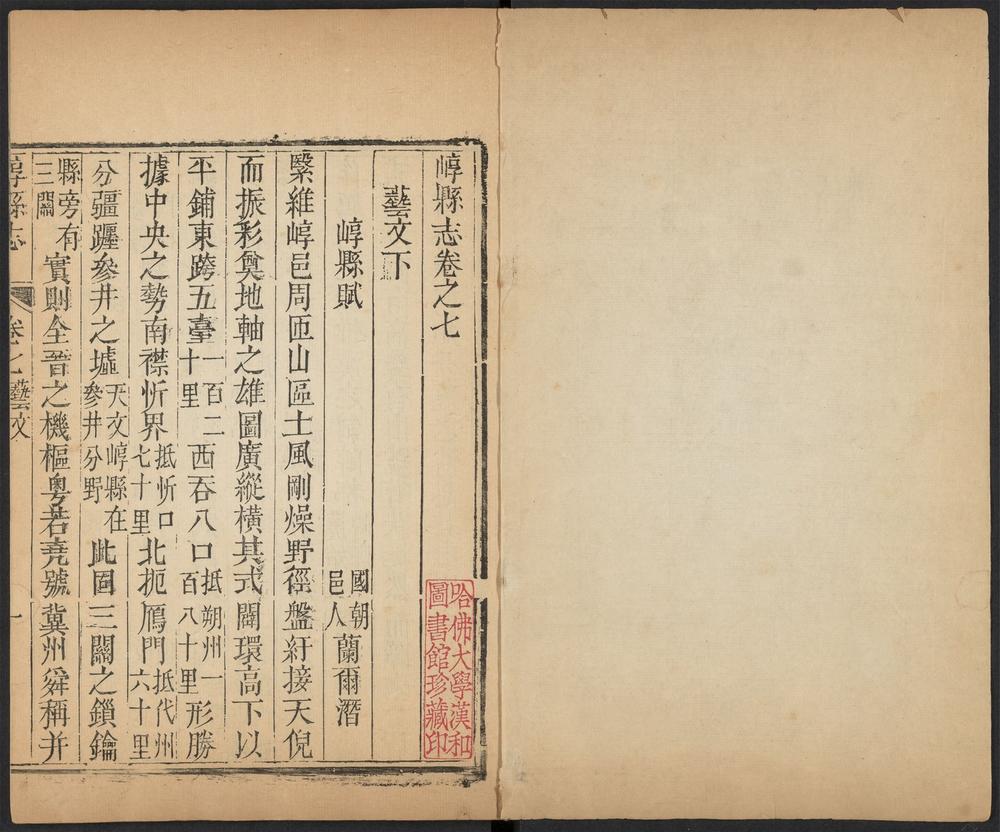 崞縣志卷之七
藝文下
崞縣賦
國朝邑人蘭爾潛
繄維崞邑周匝山區土風剛燥野徑盤紆接天倪
而振彩奠地軸之雄圖廣縱橫其式闢環高下以
平鋪東跨五臺一百二十里西吞八口抵朔州一百八十里形勝
據中央之勢南襟忻界抵忻口七十里北扼鴈門抵代州六十里
分疆躔參井之墟天文崞縣在參井分野此固三關之鎖鑰
縣旁有三關實則全晉之機樞粵若堯號冀州舜稱并
崞縣志
卷之七藝文
一
哈佛大學漢和
圖書館珍藏印